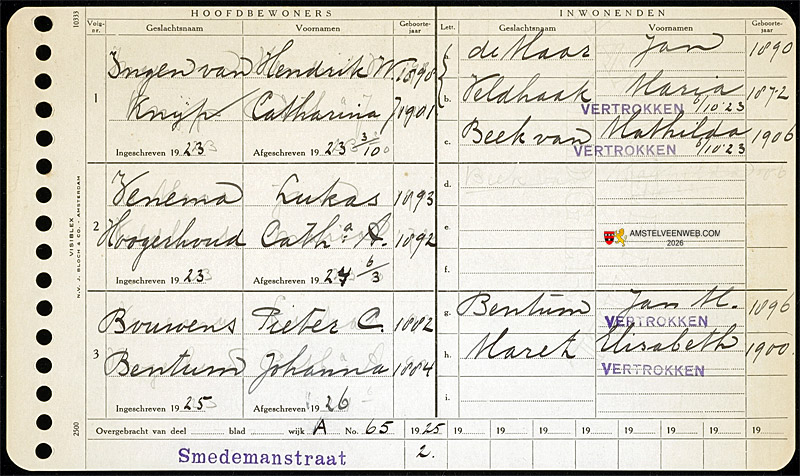 HOOFDBEWONERS INWONENDEN
Volg-nr. Geslachtsnaam Voornamen Geboorte-jaar Lett. Geslachtsnaam Voornamen Geboorte-jaar
1 Ingen van Hendrik W. 1898 a. de Maar Jan 1890
Knijp Catharina 1901 b. Veldhaak Maria 1872
VERTROKKEN 6/10·23
Ingeschreven 1923 Afgeschreven 1923 3/10 c. Beek van Mathilda 1906
VERTROKKEN 6/10·23
2 Venema Lukas 1893 d.
Hoogerhoud Cath.a A. 1892 e.
AMSTELVEENWEB.COM
2026
Ingeschreven 1923 Afgeschreven 1924 6/3 f.
3 Bouwens Pieter C. 1882 g. Bentum Jan M. 1896
VERTROKKEN
Bentum Johanna 1884 h. Maret Elisabeth 1900
VERTROKKEN
Ingeschreven 1925 Afgeschreven 1926 i.
Overgebracht van deel blad wijk A No. 65 1925 19 19 19 19 19 19 19 19
Smedemanstraat 2.
10333
VISIBLEX
N.V. J. BLOCH & CO. - AMSTERDAM
2500